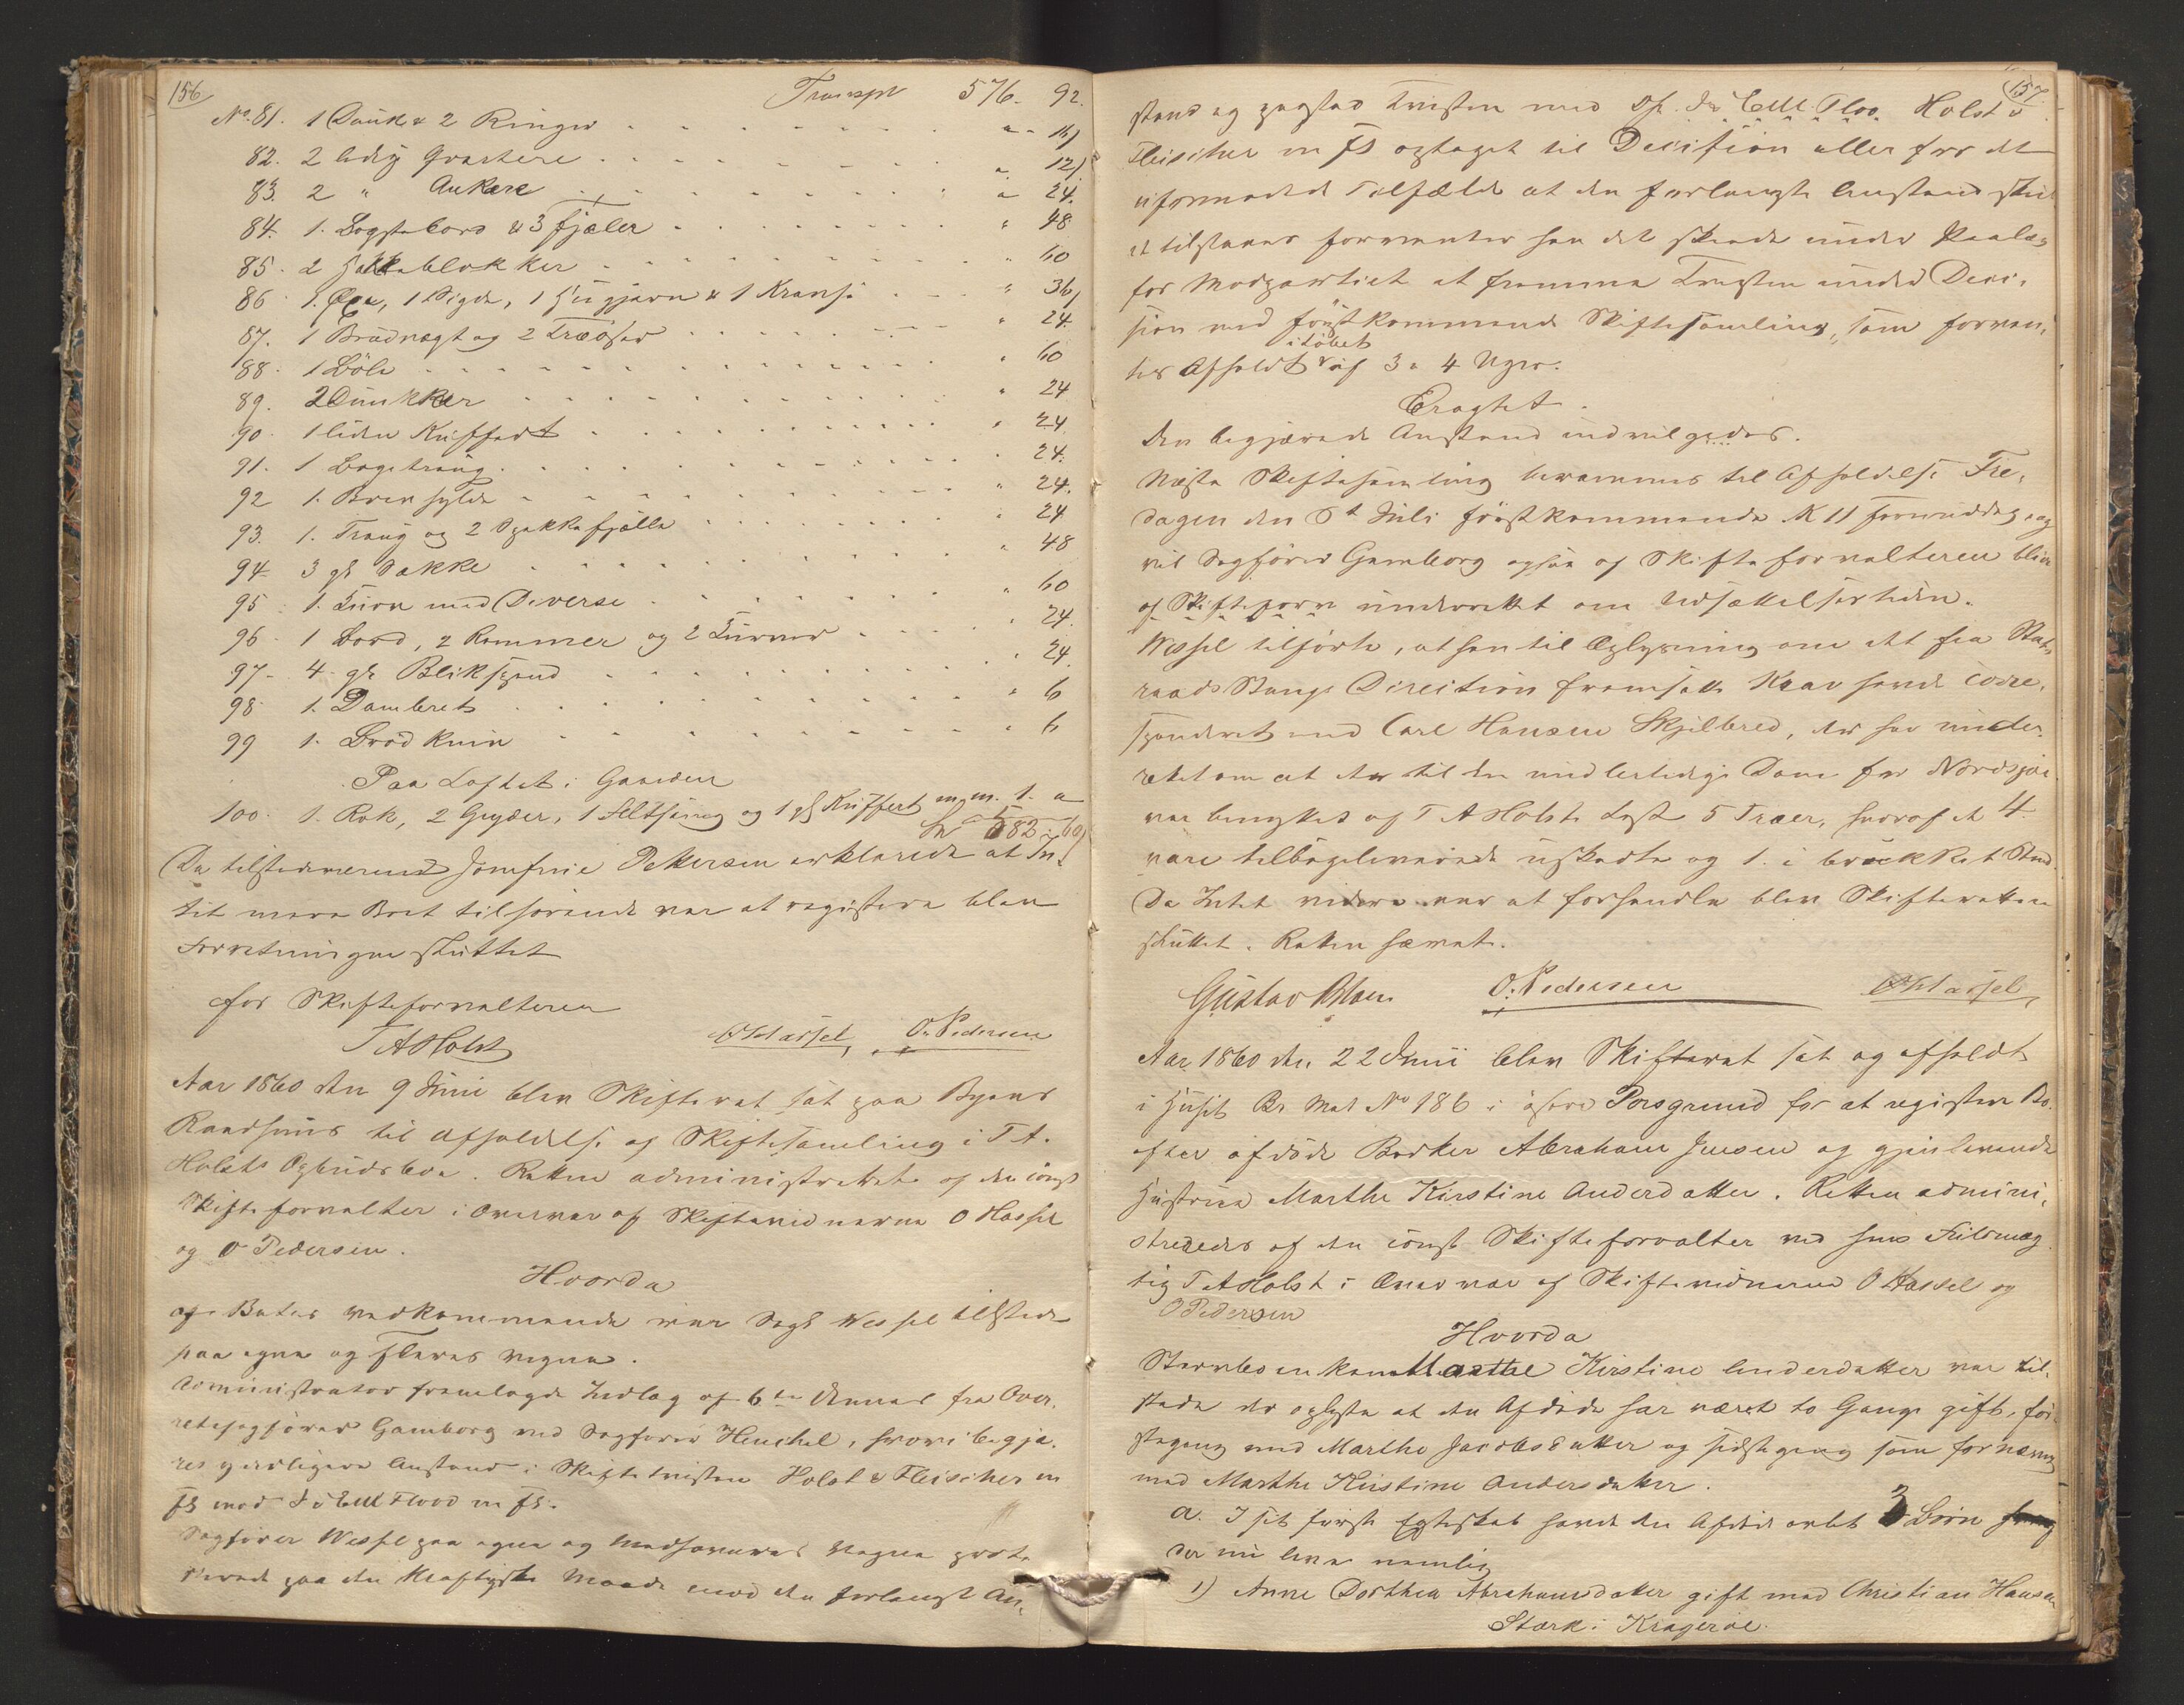 156
Transpt 576. 92.
No. 81. 1 Dunk & 2 Ringer " 16
82. 2 ledig Qvartere " 12
83. 2 " Ankere " 24.
84. 1. Bagstebord & 3 fjæler " 48
85. 2 Jækkeblokker " 60
86. 1. Øxe, 1 Sigde, 1 Hugjern & 1 Kranse " 36
87. 1 Brødnagt og 2 Træøser " 24.
88. 1 Bøle " 60
89. 2 Dunkker " 24
90. 1 liden Kuffert " 24
91. 1 Bagetraug " 24.
92 1. Brenhylde " 24.
93. 1. Traug og 2 Spekkefjælle " 24
94. 3 gl Sække " 48
95. 1. Kurv med Diverse " 60
96. 1 Bord, 2 Rammer og 2 Kurver " 24.
97. 4. gl Blikspand " 24.
98. 1. Dambret " 6
99 1. Brødkniv " 6
Paa Loftet i Gaarden
100. 1. Rok, 2 Gryder, 1 Feltseng og 1 gl Kuffert m. m. 1. "
582. 60
Da tilstedeværende Jomfrue Pettersen erklærede at In-
tet mere Boet tilhørende var at registere blev
Forretningen sluttet
for Skifteforvalteren
T A Holst O Hassel, O. Pedersen
Aar 1860 den 9 Juni blev Skifteret sat paa Byens
Raadhuus til Afholdelse af Skiftesamling i T A.
Holsts Opbudsboe. Retten administrertes af den const
Skifteforvalter i Overvær af Skiftevidnerne O Hassel
og O Pedersen.
Hvorda
af Boets vedkommende var Sagf Wessel tilstede
paa egne og Fleres vegne.
Administrator fremlagde Indlæg af 6te dennes fra Over-
retssagfører Gamborg ved Sagfører Henchel, hvori begjæ-
res yderligere Anstand i Skiftetvisten Holst & Fleischer m
fl mod Flood m fl.
Sagfører Wessel paa egne og Medhaveres Vegne prote-
sterede paa den kraftigste Maade mod den forlangte An-
157
stand og paastod Tvisten med Holst &
Fleischer m fl optaget til Decision eller for det
uformodede Tilfælde at den forlangte Anstand skul-
de tilstaaes formenter han det skeede under Paalæg
for Modpartiet at fremme Tvisten under Deci-
sion ved førstkommende Skiftesamling, som forven-
i Løbet
tes Afholdt af 3 a 4 Uger.
Eragtet.
Den begjærede Anstand indvilgedes.
Næste Skiftesamling berammes til Afholdelse Fre-
dagen den 6t Juli førstkommende Kl 11 formiddag, og
vil Sagfører Gamborg ogsaa af Skifteforvalteren blive
af Skifteforv underrettet om Udsættelsestiden.
Wessel tilførte, at han til Oplysning om det fra Stats-
raad Stangs Direction fremsatte Krav havde corre-
sponderet med Carl Hansen Skjilbred, der har under-
rettet om at der til den midlertidige Dam for Nordsjøe
var benyttet af T A Holsts Last 5 Træer, hvoraf de 4.
vare tilbageleverede uskadte og 1. i brækket Stand.
Da Intet videre var at forhandle blev Skifteretten
sluttet. Retten hævet.
Gustav Blom O. Pedersen O Hassel,
Aar 1860 den 22 Juni blev Skifteret sat og afholdt
i Huset Br Mat No 186 i østre Porsgrund for at registere Bo
efter afdøde Bødker Abraham Jensen og gjenlevende
Hustrue Marthe Kirstine Andersdatter. Retten admini-
streredes af den const Skifteforvalter ved hans Fuldmæg-
tig T A Holst i Overvær af Skiftevidnerne O Hassel og
O Pedersen
Hvorda
Stervboenken Marthe Kirstine Andersdatter var til-
stede der oplyste at den Afdøde har været to Gange gift, før-
stegang med Marthe Jacobsdatter og sidstegang som fornævnt
med Marthe Kirstine Andersdatter.
a. I sit første Egteskab havde den Afdøde avlet 3 Børn
der nu leve nemlig
1) Anne Dorthea Abrahamsdatter gift med Christian Hansen
Stærk i Kragerøe.